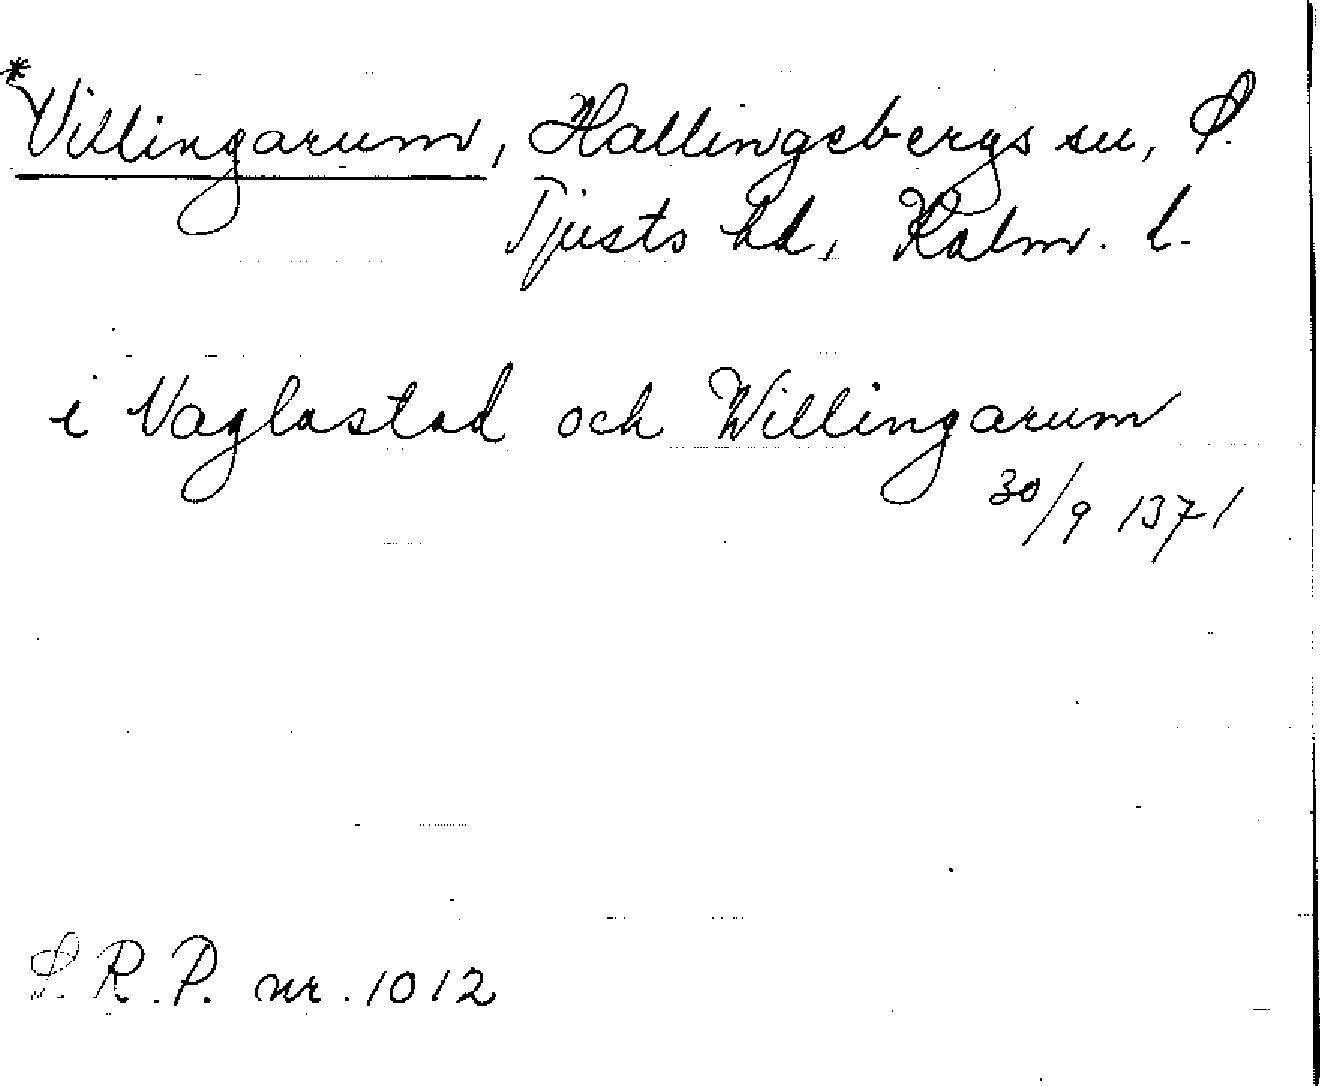 *Villingarum, Hallingebergs sn, S.
Tjusts hd, Kalm. l.
i Vaglastad och Willingarum
30/9 1371
S.R.P. nr. 1012